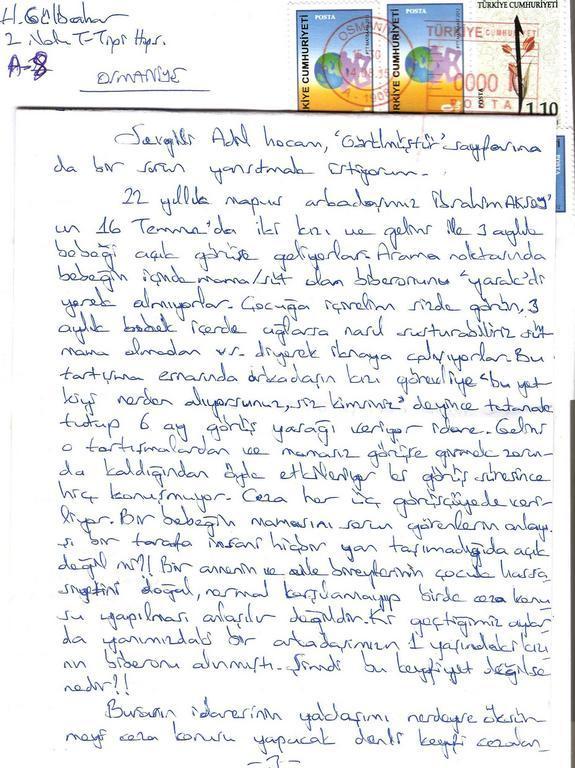 H. Gülbahar
2 Nolu T-Tipi Hps.
A-8
OSMANİYE
POSTA
TÜRKİYE CUMHURİYETİ
POSTA
TÜRKİYE CUMHURİYETİ
TÜRKİYE CUMHURİYETİ
POSTA
1.10
OSMANİYE
TÜRKİYE CUMHURİYETİ
0000
POSTA
Sevgili Adil hocam, "Görülmüştür" sayfarına
da bir sorun yansıtmak istiyorum.
22 yıllık mapus arkadaşımız İbrahim AKSOY'
un 16 Temmuz'da iki kızı ve gelini ile 3 aylık
bebeği açık görüşe geliyorlar. Arama noktasında
bebeğin içinde mama/süt olan biberonunu "yasak" di
yerek almıyorlar. Çocuğa içirelim sizde görün, 3
aylık bebek içerde ağlarsa nasıl susturabiliriz süt
mama olmadan vs. diyerek iknaya çalışıyorlar. Bu
tartışma esnasında arkadaşın kızı görevliye "bu yet
kiyi nerden alıyorsunuz, siz kimsiniz" deyince tutanak
tutup 6 ay görüş yasağı veriyor idare. Gelini
o tartışmalardan ve mamasız görüşe girmek zorun
da kaldığından öyle etkileniyor ki görüş süresince
hiç konuşmuyor. Ceza her üç görüşçüyede veri-
liyor. Bir bebeğin mamasını sorun görenlerin anlayı
şı bir tarafa insani hiçbir yan taşımadığıda açık
değil mi?! Bir annenin ve aile bireylerinin çocuk hassa
siyetini doğal, normal karşılamayıp birde ceza konu
su yapılması anlaşılır değildir. Ki geçtiğimiz aylar
da yanımızdaki bir arkadaşımızın 1 yaşındaki kızı
nın biberonu alınmıştı. Şimdi bu keyfiyet değilse
nedir?!
Buranın idaresinin yaklaşımı nerdeyse öksür
meyi ceza konusu yapacak denli keyfi cezalan